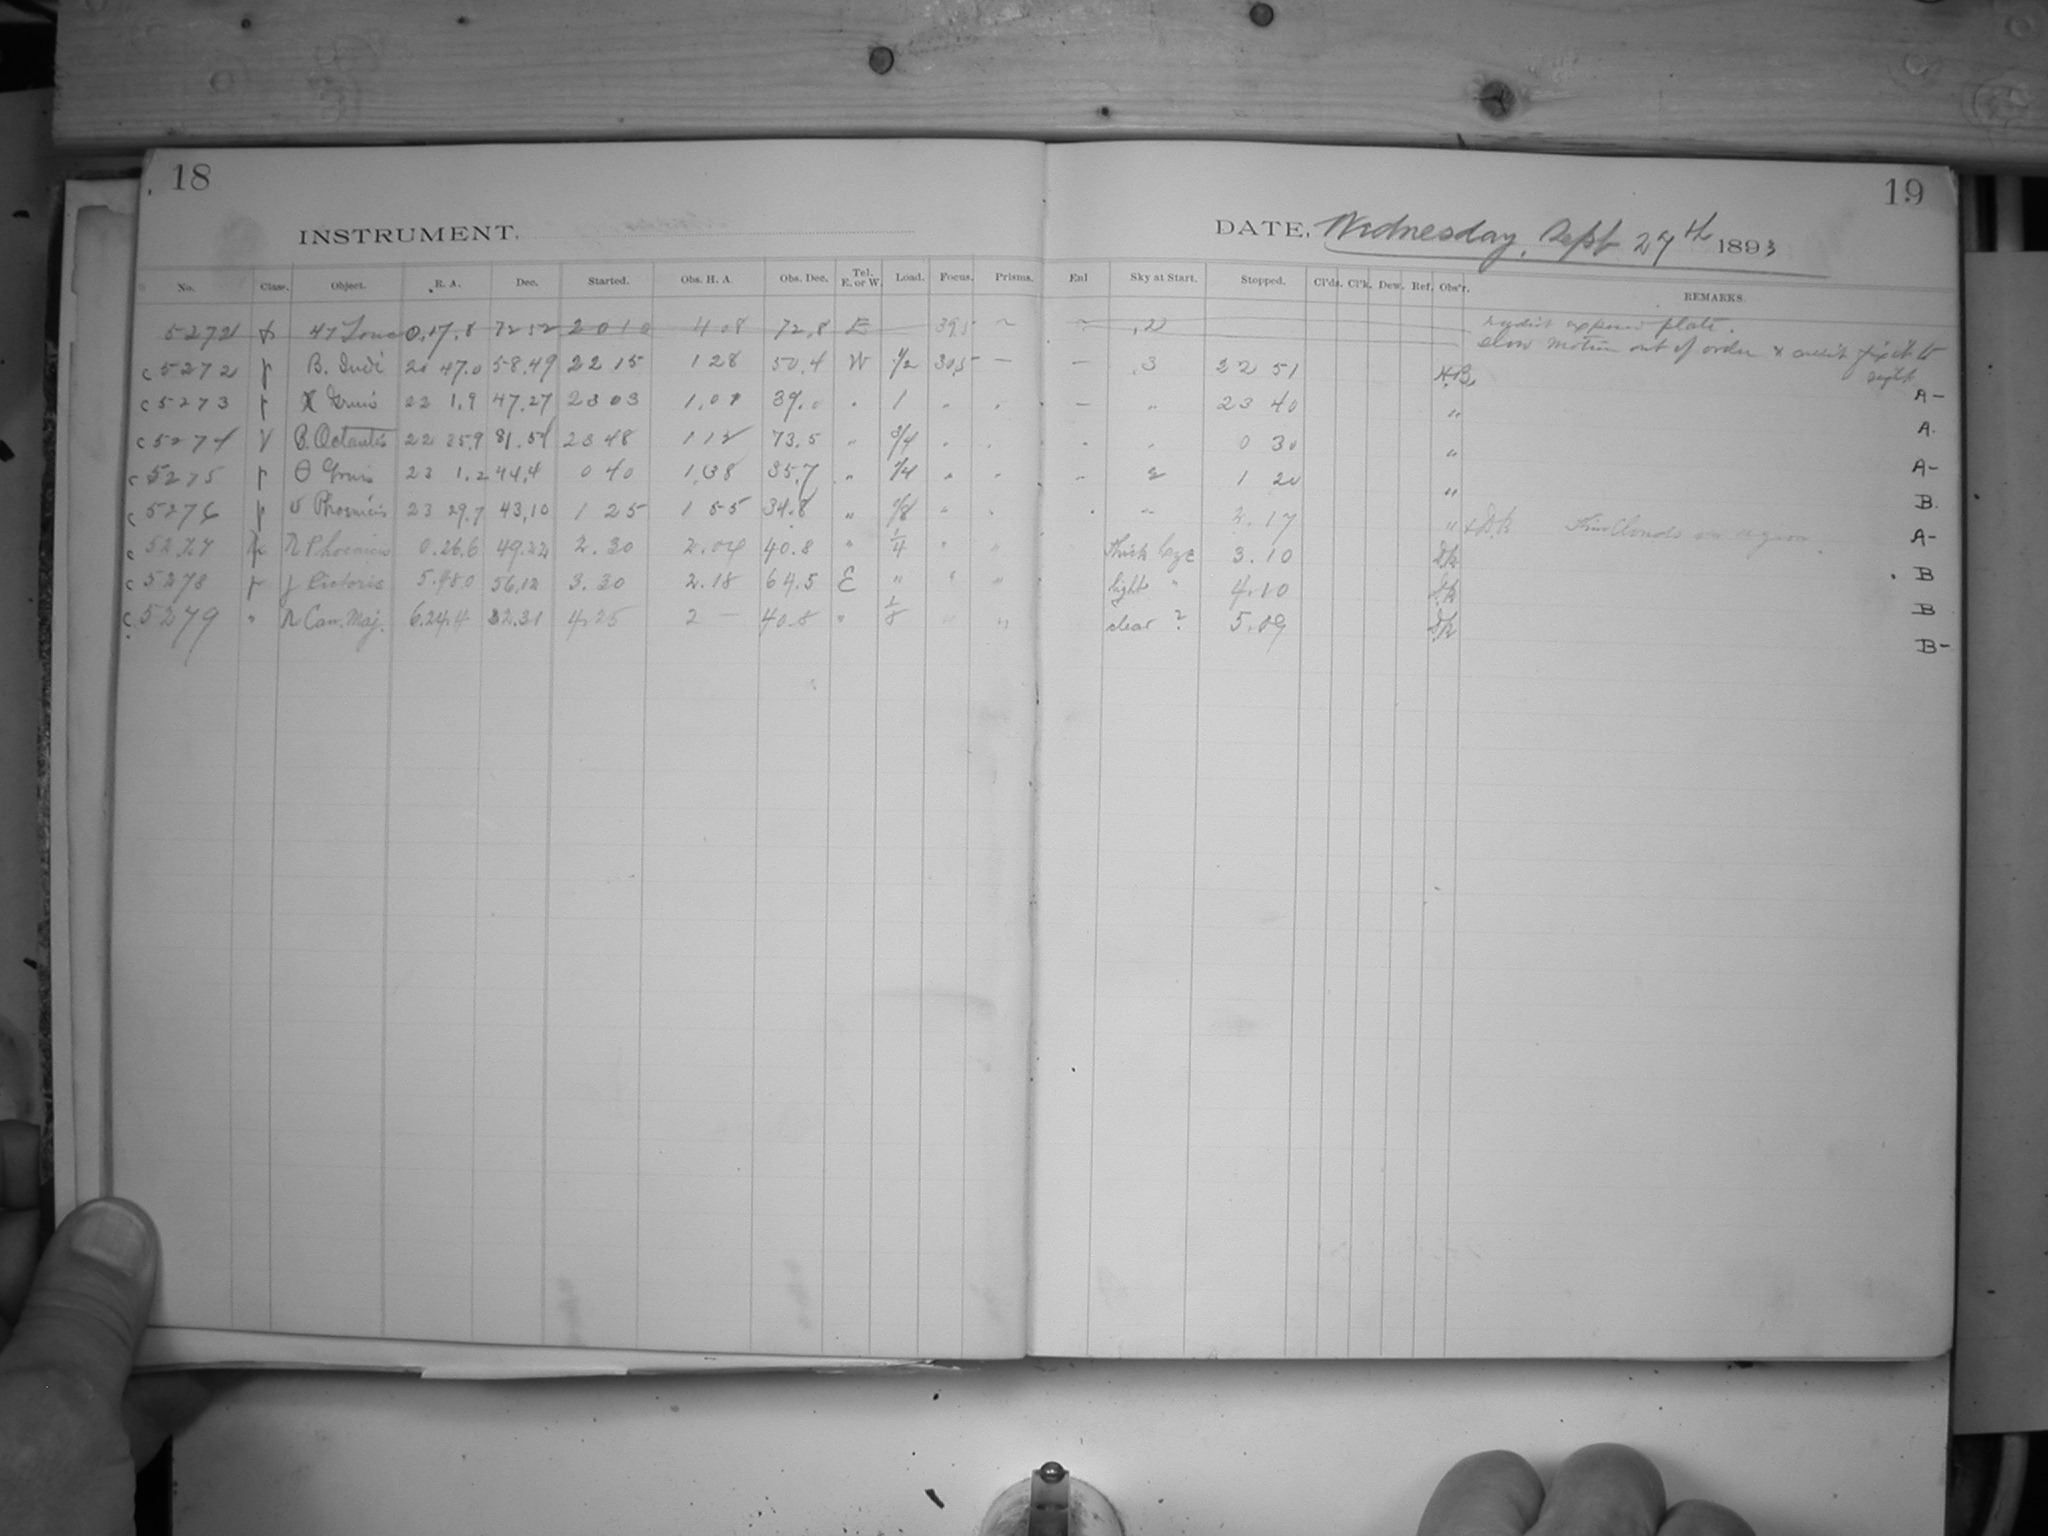 18
19
INSTRUMENT.
DATE, Wednesday, Sept 27th 1893
No. Class. Object. R. A. Dec. Started. Obs. H. A. Obs. Dec. Tel. E. or W. Load. Focus. Prisms. Enl Sky at Start. Stopped. Cl'ds. Cl'k. Dew. Ref. Obs'r. REMARKS.
5272 47 0,17.8 72 52 20 10 4 08 72,8 E 39,5 plate.
slow motion out of order & fix it to
c 5272 p B. Indi 20 47.0 58.49 22 15 1 28 50.4 W 1/2 30,5 — — 3 22 51 H.B. A-
c 5273 p Gruis 22 1,9 47.27 23 03 1,07 39.0 " 1 " " — " 23 40 " A.
c 5274 B. Octantis 22 35.9 81.54 23 48 1 12 73.5 " 3/4 " " - " 0 30 " A-
c 5275 p θ Gruis 23 1.2 44,4 0 40 1,38 35,7 " 1/4 " " - 2 1 20 " B.
c 5276 p Phoenicis 23 29.7 43,10 1 25 1 55 34.8 " 1/8 " " " 2.17 " Thin Clouds on region. A-
c 5277 Phoenicis 0.26.6 49.22 2.30 2.04 40.8 " 1/4 " " Thick haze 3.10 B
c 5278 p Pictoris 5.48.0 56.12 3.30 2.18 64.5 E " " " light " 4.10 B
c 5279 " Can. Maj. 6.24.4 32.31 4.25 2 — 40.8 " 1/8 " " clear ? 5.09 B-